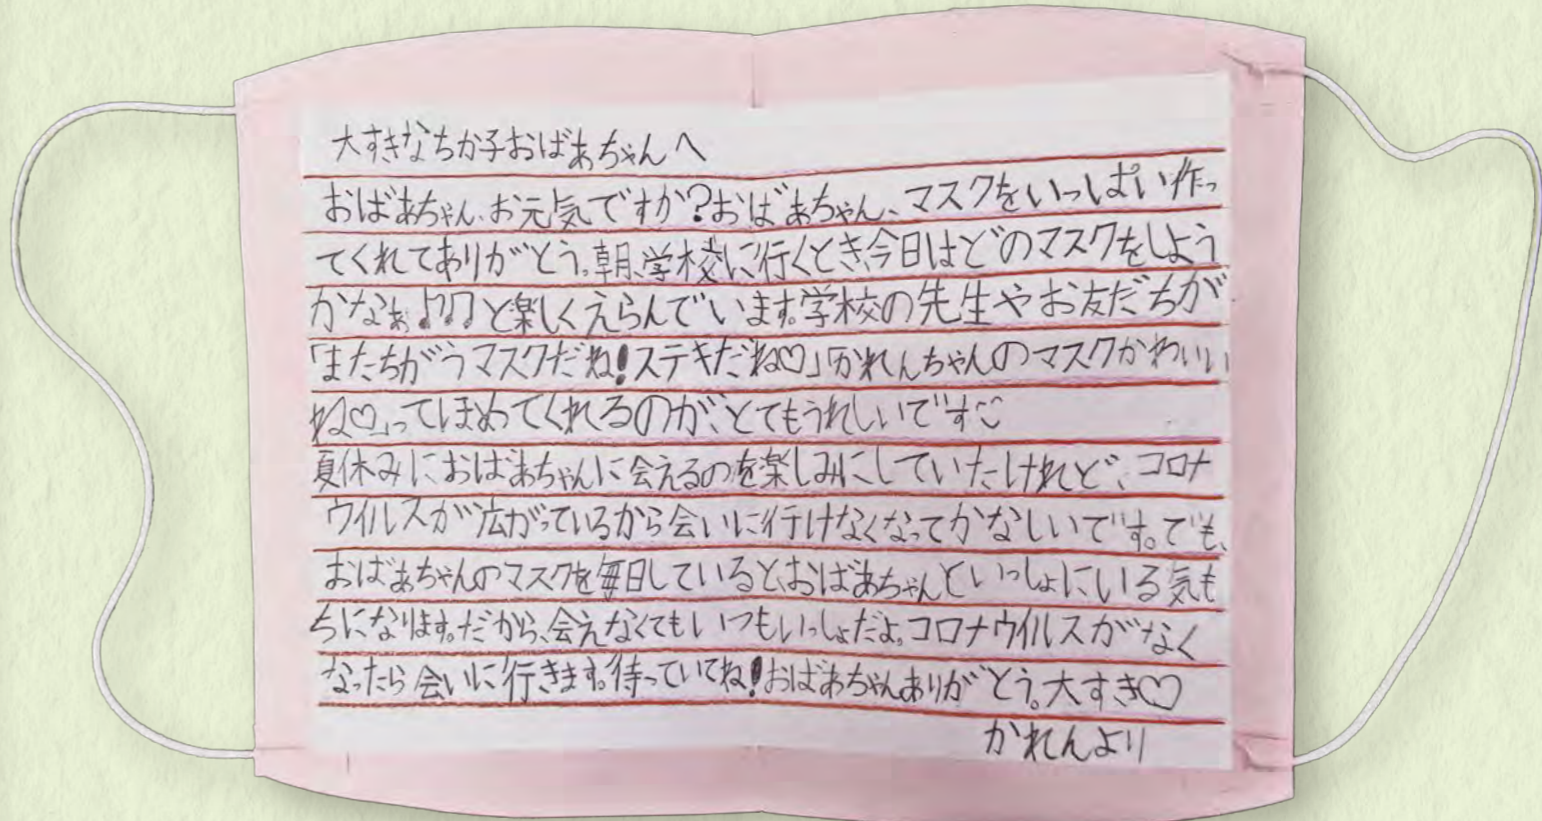 大すきなちか子おばあちゃんへ
おばあちゃん、お元気ですか?おばあちゃん、マスクをいっぱい作っ
てくれてありがとう。朝、学校に行くとき、今日はどのマスクをしよう
かなぁ♪♫と楽しくえらんでいます。学校の先生やお友だちが
「またちがうマスクだね!ステキだね♡」「かれんちゃんのマスクかわいい
ね♡」ってほめてくれるのが、とてもうれしいです
夏休みにおばあちゃんに会えるのを楽しみにしていたけれど、コロナ
ウイルスが広がっているから会いに行けなくなってかなしいです。でも、
おばあちゃんのマスクを毎日していると、おばあちゃんといっしょにいる気も
ちになります。だから、会えなくてもいつもいっしょだよ。コロナウイルスがなく
なったら会いに行きます。待っていてね!おばあちゃんありがとう。大すき♡
かれんより